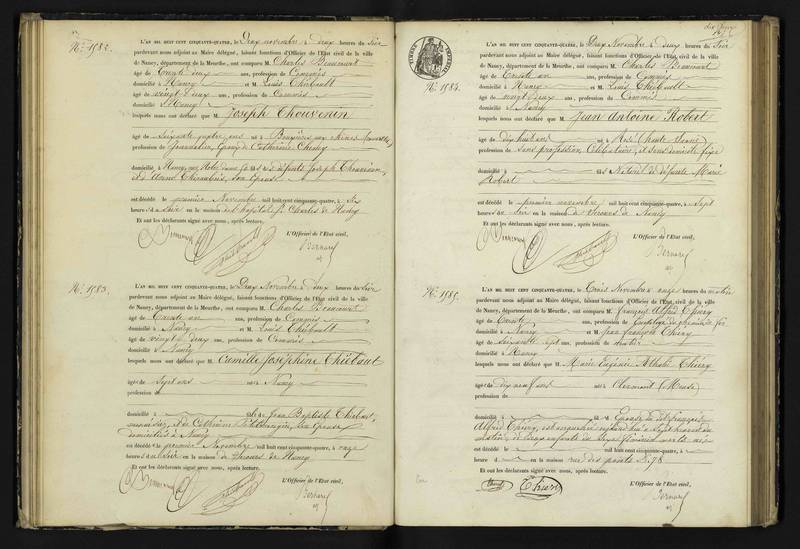 N.º 1582.
L'AN MIL HUIT CENT CINQUANTE-QUATRE, le Deux novembre à deux heures du Soir
pardevant nous adjoint au Maire délégué, faisant fonctions d'Officier de l'Etat civil de la ville
de Nancy, département de la Meurthe, ont comparu M. Charles Beaumont
âgé de ans, profession de Commis
domicilié à Nancy et M. Louis Thiébault
âgé de vingt deux ans, profession de Commis
domicilié à Nancy
lesquels nous ont déclaré que M. Joseph Thouvenin
âgé de Soixante quatre ans né à Bouxières aux chênes (Meurthe)
profession de Journalier, Epoux de Catherine
domicilié à Nancy, fils de défunts Joseph Thouvenin
et son Epouse
est décédé le premier Novembre mil huit cent cinquante-quatre, à
heures d soir en la maison hôpital St Charles de Nancy
Et ont les déclarants signé avec nous, après lecture.
L'Officier de l'Etat civil,
Bernard
N.º 1583.
L'AN MIL HUIT CENT CINQUANTE-QUATRE, le Deux Novembre à deux heures du Soir
pardevant nous adjoint au Maire délégué, faisant fonctions d'Officier de l'Etat civil de la ville
de Nancy, département de la Meurthe, ont comparu M. Charles Beaumont
âgé de Trente un ans, profession de Commis
domicilié à Nancy et M. Louis Thiébault
âgé de vingt deux ans, profession de Commis
domicilié à Nancy
lesquels nous ont déclaré que M. Camille Joséphine Thiébaut
âgée de Sept ans née à Nancy
profession de
domicilié à fille de Jean Baptiste Thiébaut,
et de Catherine son Epouse
domiciliés à Nancy
est décédée le premier Novembre mil huit cent cinquante-quatre, à onze
heures d soir en la maison de Secours de Nancy
Et ont les déclarants signé avec nous, après lecture.
L'Officier de l'Etat civil,
Bernard
TIMBRE IMPERIAL
N.º 1584.
L'AN MIL HUIT CENT CINQUANTE-QUATRE, le Deux Novembre à deux heures du Soir
pardevant nous adjoint au Maire délégué, faisant fonctions d'Officier de l'Etat civil de la ville
de Nancy, département de la Meurthe, ont comparu M. Charles Beaumont
âgé de Trente un ans, profession de Commis
domicilié à Nancy et M. Louis Thiébault
âgé de vingt deux ans, profession de Commis
domicilié à Nancy
lesquels nous ont déclaré que M. Jean Antoine Robert
âgé de dix huit ans né à (Haute Saône)
profession de Sans profession Célibataire, et sans domicile fixe
domicilié à fils Naturel de défunte Marie
Robert
est décédé le premier novembre mil huit cent cinquante-quatre, à Sept
heures du soir en la maison de Secours de Nancy
Et ont les déclarants signé avec nous, après lecture.
L'Officier de l'Etat civil,
Bernard
N.º 1585.
L'AN MIL HUIT CENT CINQUANTE-QUATRE, le Trois Novembre à onze heures du matin
pardevant nous adjoint au Maire délégué, faisant fonctions d'Officier de l'Etat civil de la ville
de Nancy, département de la Meurthe, ont comparu M. François Alfred Thiéry
âgé de Trente ans, profession de chemin de fer
domicilié à Nancy et M. Jean François Thiéry
âgé de soixante sept ans, profession de
domicilié à Nancy
lesquels nous ont déclaré que M. Marie Eugénie Thiéry
âgée de dix neuf ans née à Clermont (Meuse)
profession de
domicilié à Epouse du dit François
Alfred Thiéry, est aujourd'hui à Sept heures du
matin, d'un enfant du Sexe féminin
est décédé le mil huit cent cinquante-quatre, à
heures d en la maison rue des ponts N.º 78
Et ont les déclarants signé avec nous, après lecture.
L'Officier de l'Etat civil,
Thiéry
Bernard